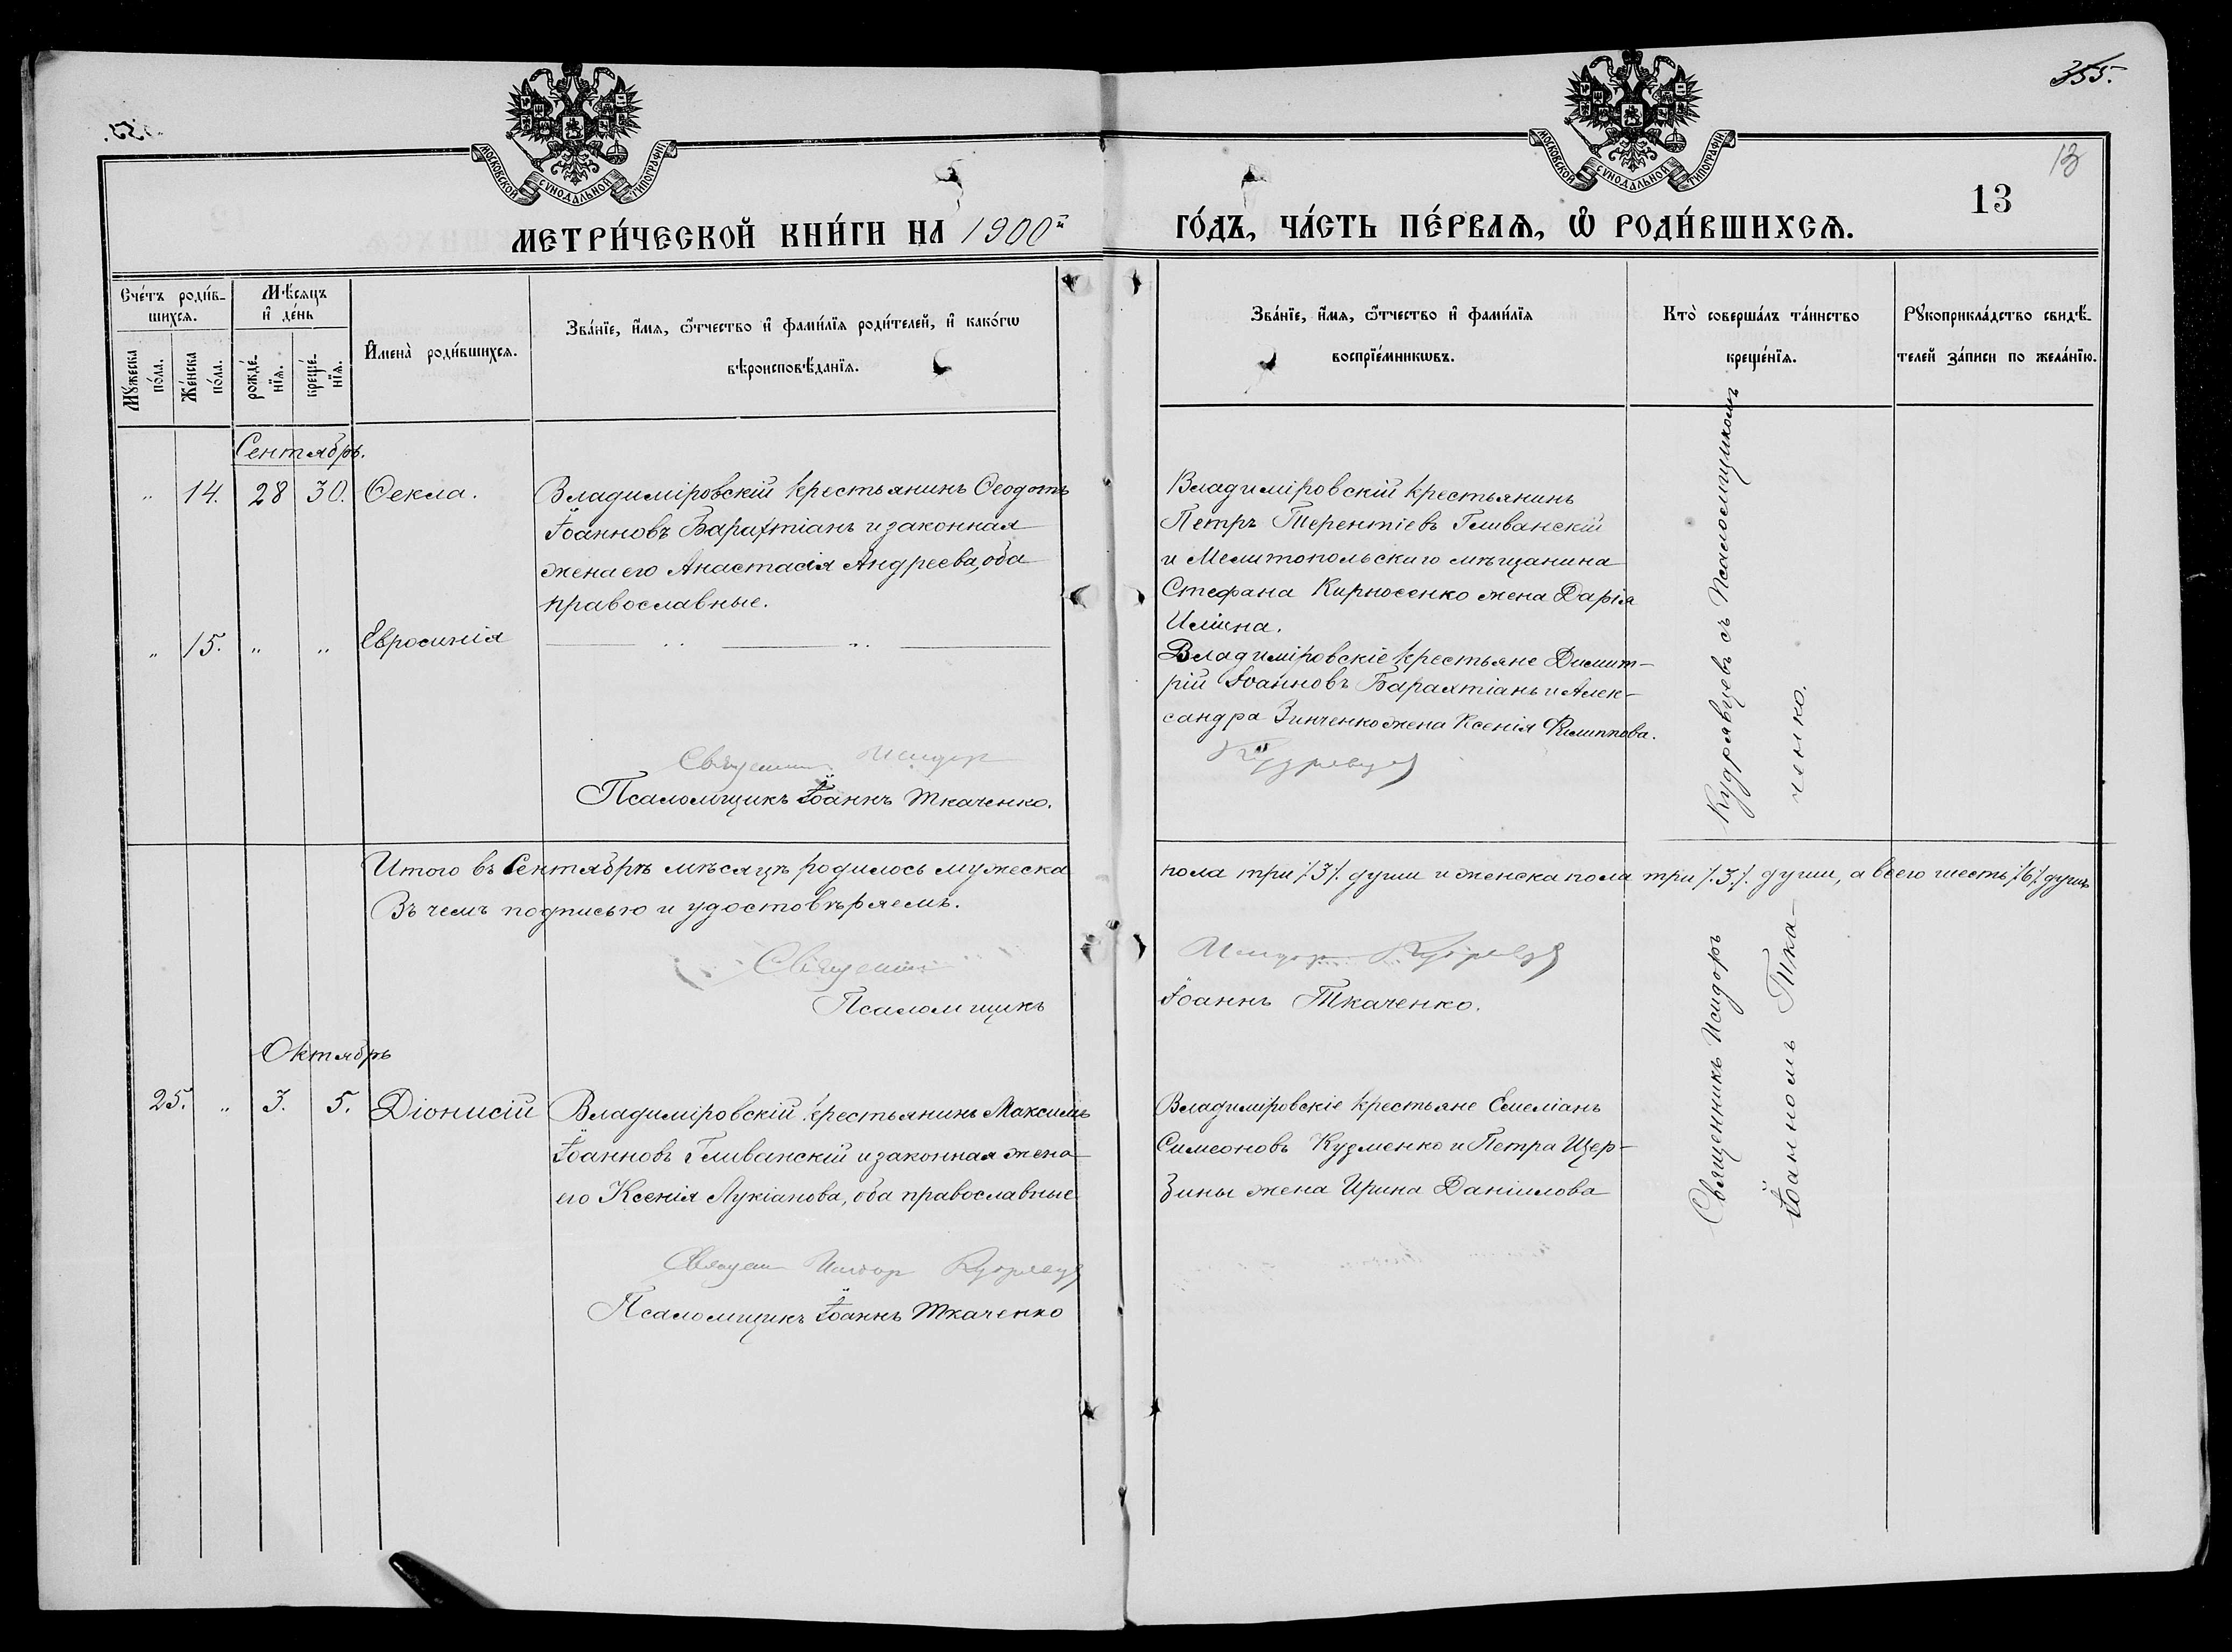 355.
13
13
МОСКОВСКОЙ СѴНОДАЛЬНОЙ ТИПОГРАФІИ
МОСКОВСКОЙ СѴНОДАЛЬНОЙ ТИПОГРАФІИ
МЕТРИ́ЧЕСКОЙ КНИ́ГИ НА 1900й ГО́ДЪ, ЧА́СТЬ ПЕ́РВАѦ, Ѡ҆ РОДИ́ВШИХСѦ.
Сче́тъ роди́в-
шихсѧ.
Мꙋ́жеска
по́ла.
Же́нска
по́ла.
Мѣ́сяцъ
и҆ де́нь
рожде́-
нїѧ.
креще́-
нїѧ.
И҆мена̀ роди́вшихсѧ.
Зва́нїе, и҆́мѧ, ѻ҆́тчество и҆ фами́лїѧ роди́телей, и҆ како́гѡ
вѣроисповѣ́данїѧ.
Зва́нїе, и҆́мѧ, ѻ҆́тчество и҆ фами́лїѧ
воспрїе́мникѡвъ.
Кто̀ соверша́лъ та́инство
креще́нїѧ.
Рꙋкоприкла́дство свидѣ́-
телей за́писи по жела́нїю.
Сентябрь.
" 14. 28 30. Ѳекла.
Владиміровскій крестьянинъ Ѳеодотъ
Іоанновъ Барахтіанъ и законная
жена его Анастасія Андреева, оба
православные.
Владиміровскій крестьянинъ
Петръ Терентіевъ Гливанскій
и Мелитопольскаго мѣщанина
Стефана Кирносенко жена Дарія
Иліина.
" 15. " " Евросинія
— " — " —
Владиміровскіе крестьяне Димит-
рій Іоанновъ Барахтіанъ и Алек-
сандра Зинченко жена Ксенія Филиппова.
Священник Исидор Кудрявцев
Псаломщикъ Іоаннъ Ткаченко.
Итого въ Сентябрѣ мѣсяцѣ родилось мужеска пола три /.3/. души и женска пола три /.3./. души, а всего шесть /.6/. душъ
Въ чемъ подписью и удостовѣряемъ.
Священник Исидор Кудрявцев
Псаломщикъ Іоаннъ Ткаченко.
Октябрь
25. " 3. 5. Діонисій
Владиміровскій крестьянинъ Максимъ
Іоанновъ Гливанскій и законная жена
его Ксенія Лукіанова, оба православные
Владиміровскіе крестьяне Емеліанъ
Симеоновъ Кузменко и Петра Щер-
бины жена Ирина Даніилова
Священник Исидор Кудрявцев
Псаломщикъ Іоаннъ Ткаченко
Священникъ Исидоръ Кудрявцевъ съ Псаломщикомъ
Іоанномъ Тка-ченко.